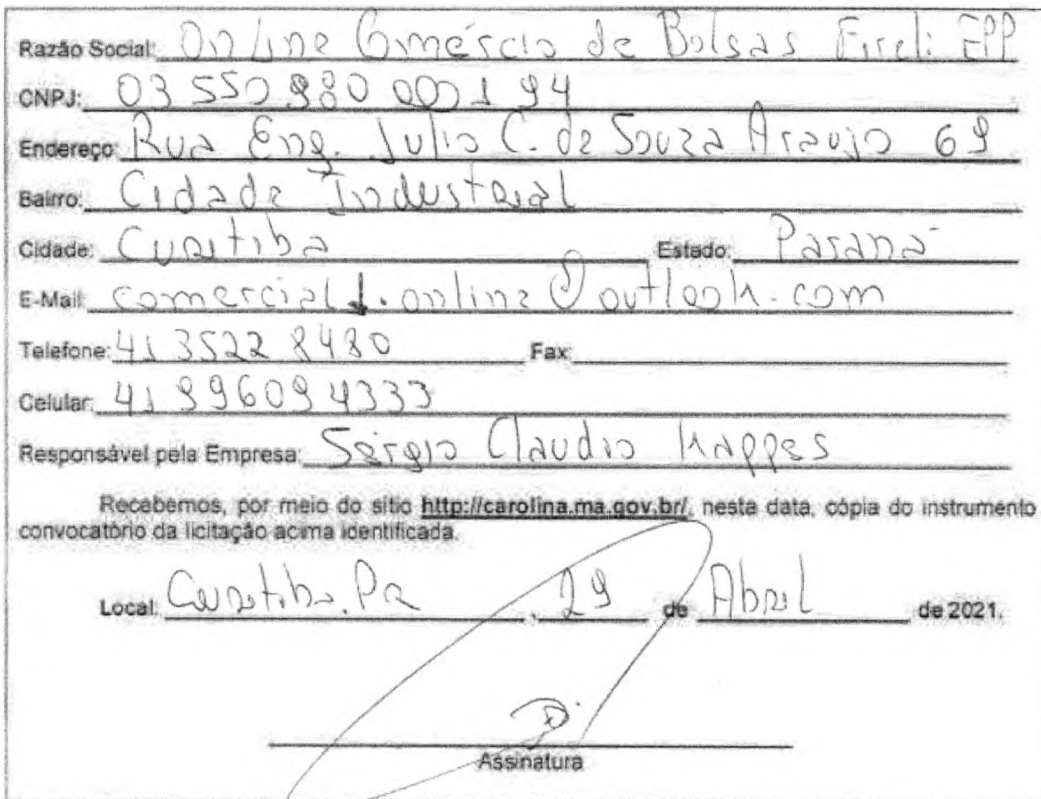 Razão Social: Online Comércio de Bolsas Eireli EPP
CNPJ: 03 550 980 0001 94
Endereço: Rua Eng. Julio C. de Souza Araujo 69
Bairro: Cidade Industrial
Cidade: Curitiba Estado: Paraná
E-Mail: comercial1.online@outlook.com
Telefone: 41 3522 8480 Fax:
Celular: 41 996094333
Responsável pela Empresa: Sérgio Claudio Kappes
Recebemos, por meio do sítio http://carolina.ma.gov.br/, nesta data, cópia do instrumento
convocatório da licitação acima identificada.
Local: Curitiba, Pr , 29 de Abril de 2021.
Assinatura